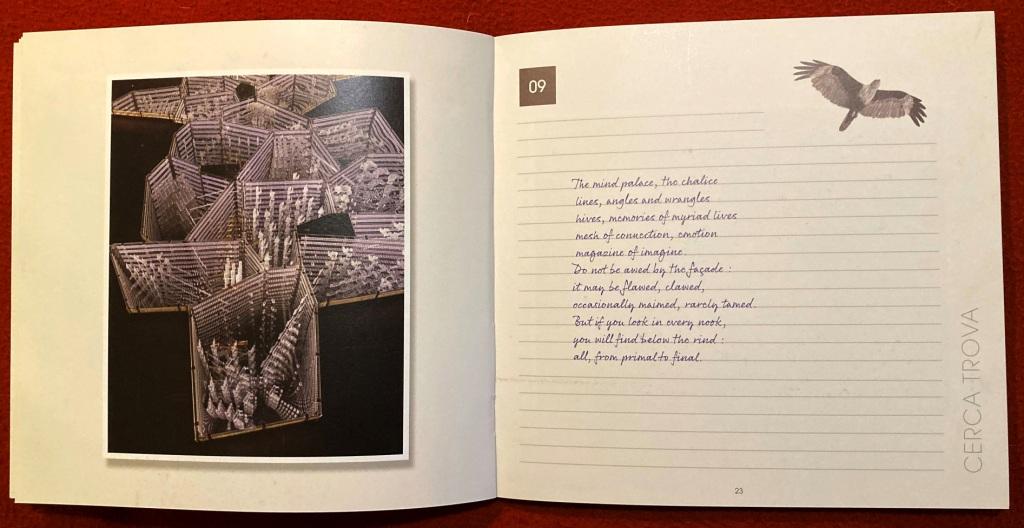 09
The mind palace, the chalice
lines, angles and wrangles
hives, memories of myriad lives
mesh of connection, emotion
magazine of imagine.
Do not be awed by the façade :
it may be flawed, clawed,
occasionally maimed, rarely tamed.
But if you look in every nook,
you will find below the rind :
all, from primal to final.
CERCA TROVA
23